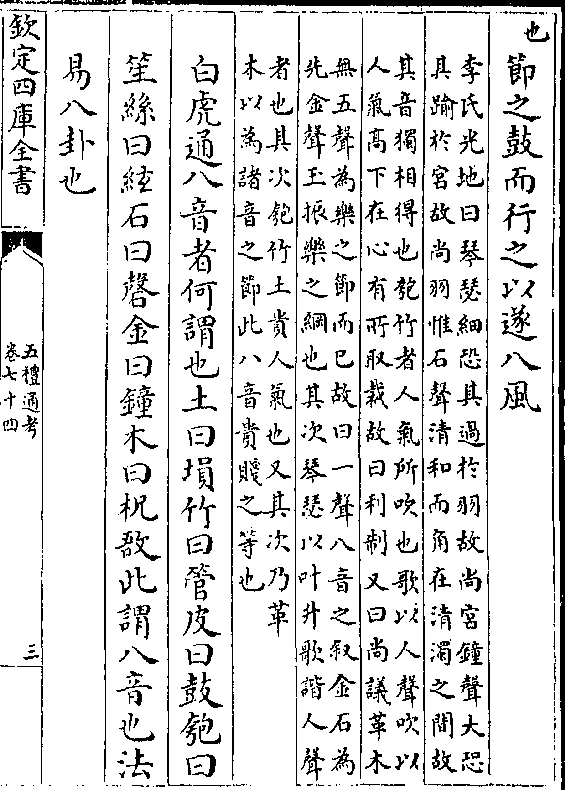 也節之鼓而行之以遂八風
李氏光地曰琴瑟細恐其過於羽故尚宮鐘聲大恐
其踰於宮故尚羽惟石聲清和而角在清濁之間故
其音獨相得也匏竹者人氣所吹也歌以人聲吹以
人氣高下在心有所取裁故曰利制又曰尚議革木
無五聲為樂之節而已故曰一聲八音之叙金石為
先金聲玉振樂之綱也其次琴瑟以叶升歌諧人聲
者也其次匏竹土貴人氣也又其次乃革
木以為諸音之節此八音貴賤之等也
白虎通八音者何謂也土曰塤竹曰管皮曰鼓匏曰
笙絲曰絃石曰磬金曰鐘木曰柷敔此謂八音也法
易八卦也
欽定四庫全書
五禮通考
卷七十四
三